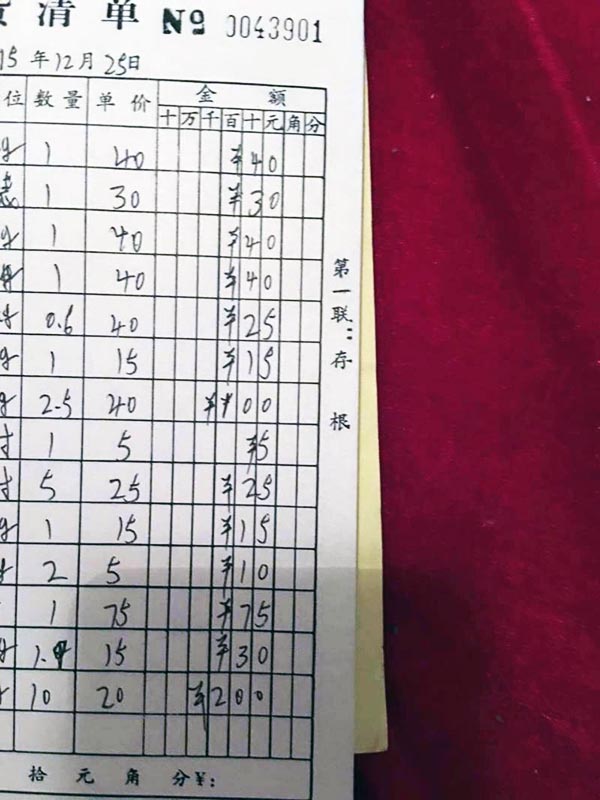 清单 № 0043901
15年12月25日
位 数量 单价 金额
十 万 千 百 十 元 角 分
1 40 ¥40
1 30 ¥30
1 40 ¥40
1 40 ¥40
0.6 40 ¥25
1 15 ¥15
2.5 40 ¥100
1 5 ¥5
5 25 ¥25
1 15 ¥15
2 5 ¥10
1 75 ¥75
15 ¥30
10 20 ¥200
拾 元 角 分 ¥:
第一联：存根